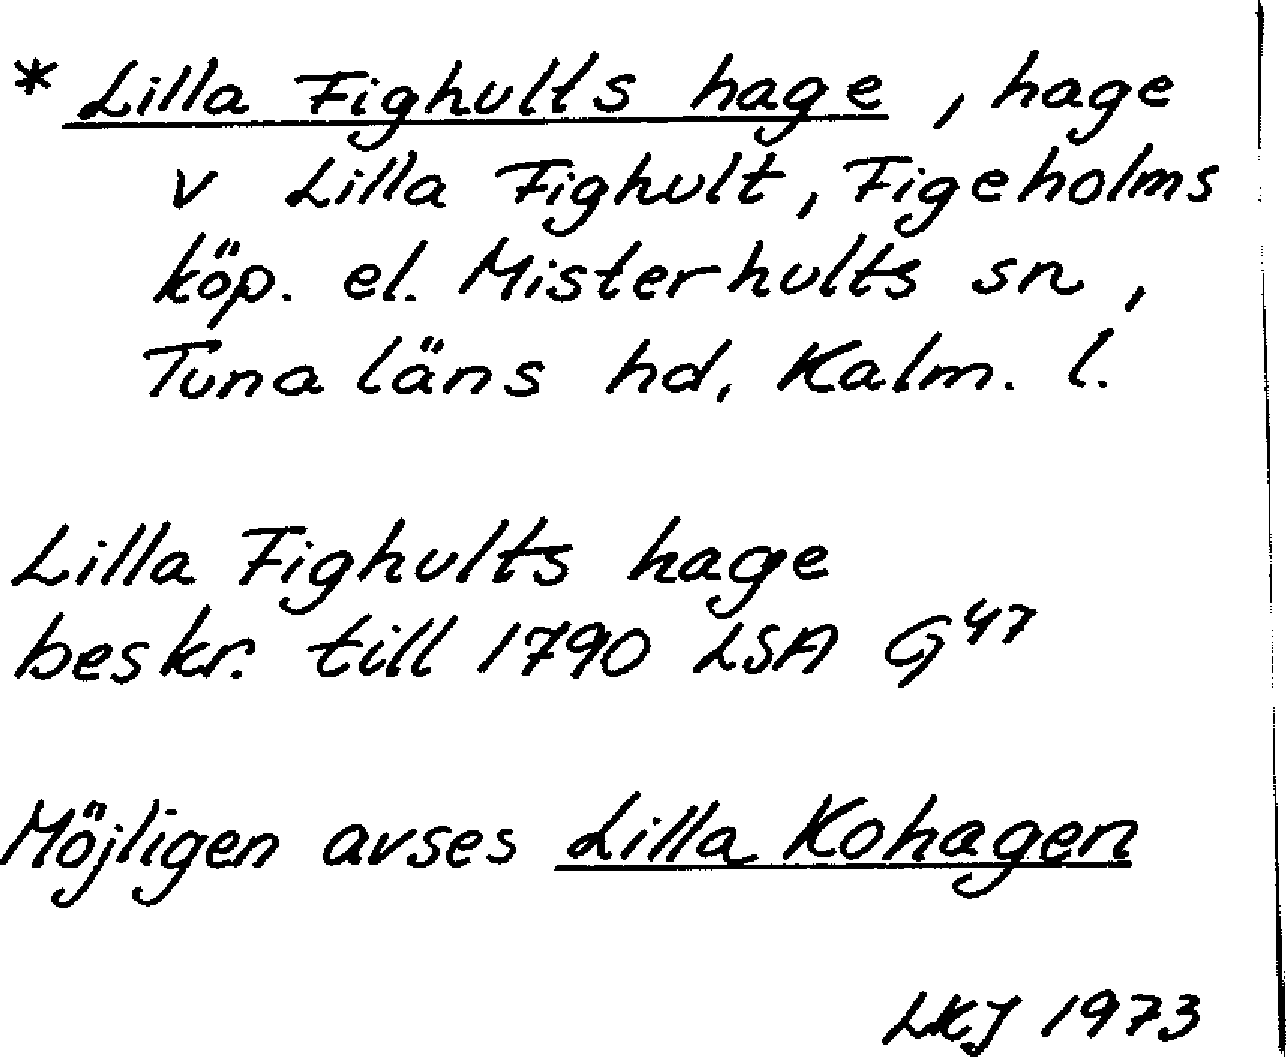 * Lilla Fighults hage, hage
v Lilla Fighult, Figeholms
köp. el. Misterhults sn,
Tuna läns hd, Kalm. l.
Lilla Fighults hage
beskr. till 1790 LSA G47
Möjligen avses Lilla Kohagen
LKJ 1973